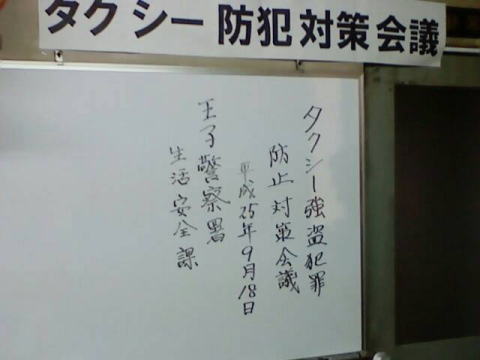 タクシー防犯対策会議
タクシー強盗犯罪
防止対策会議
平成25年9月18日
王子警察署
生活安全課